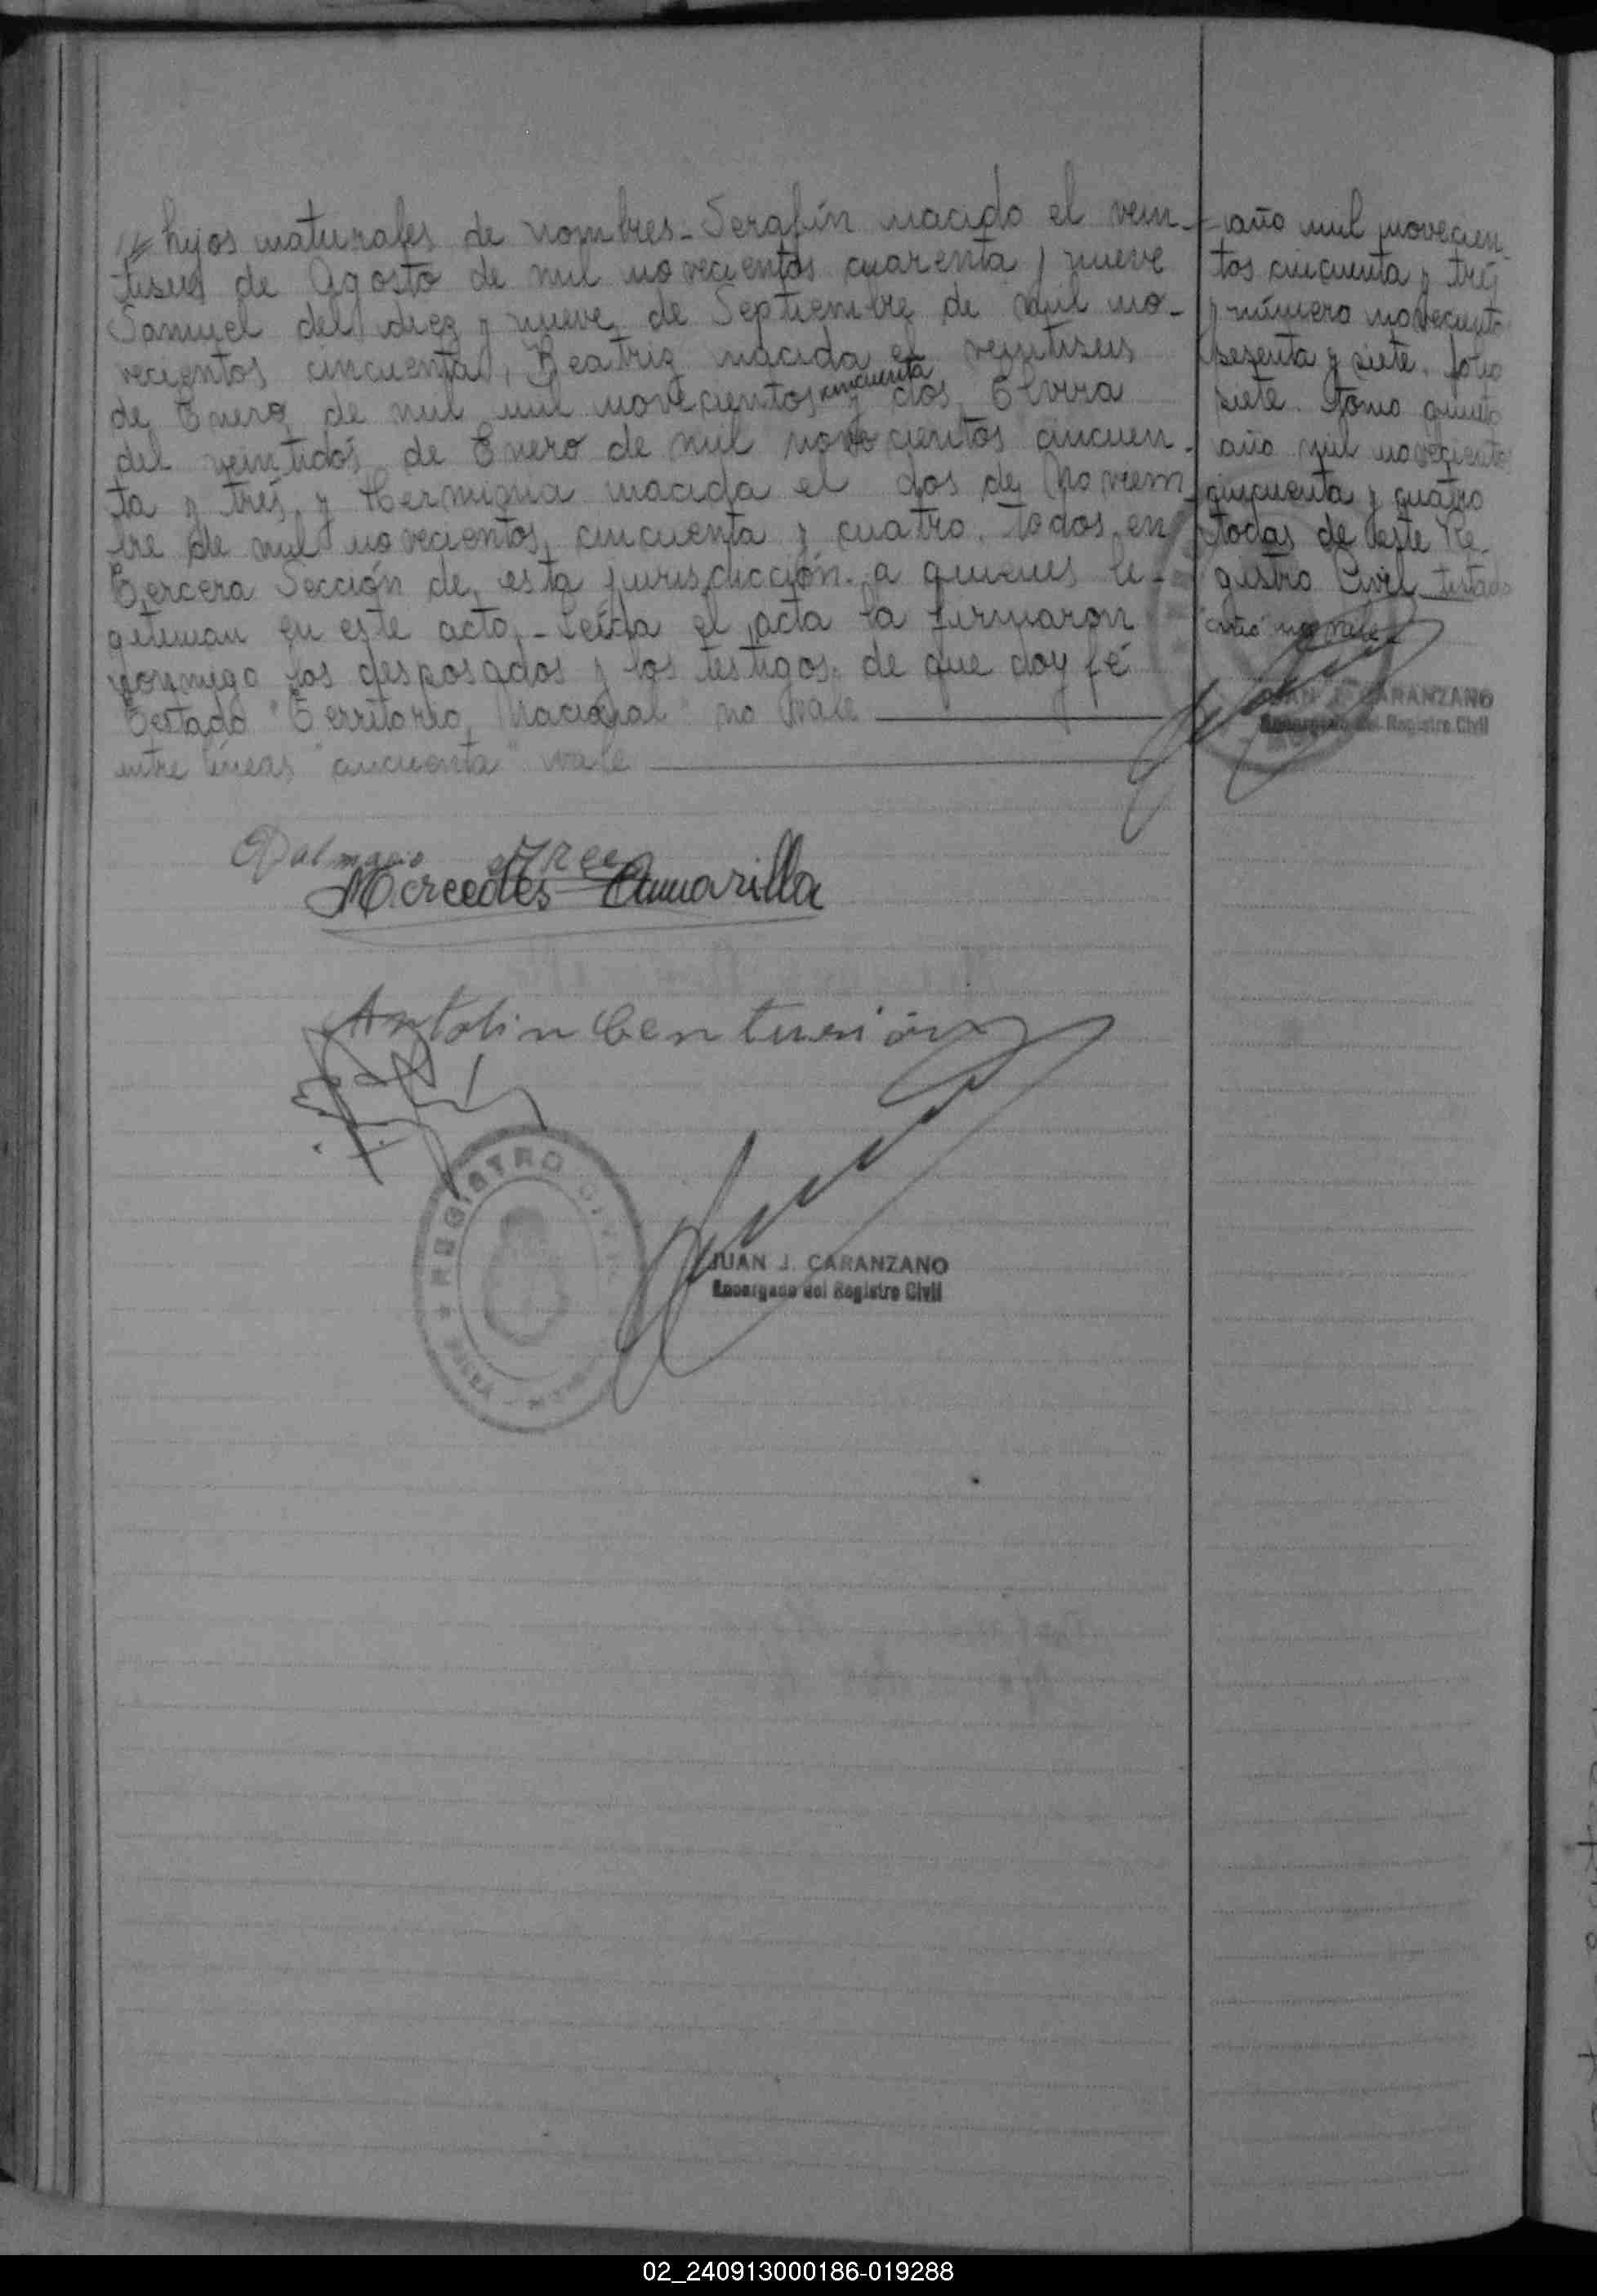 hijos naturales de nombres - Serafín nacido el vein-
tiseis de Agosto de mil novecientos cuarenta y nueve
Samuel del diez y nueve de Septiembre de mil no-
vecientos cincuenta, Beatriz nacida el veintiseis
cincuenta
de Enero de mil mil novecientos y dos, Elvira
del veintidós de Enero de mil novecientos cincuen-
ta y trés, y Herminia nacida el dos de Noviem-
bre de mil novecientos cincuenta y cuatro, todos en
Tercera Sección de esta jurisdicción a quienes le-
gitiman en este acto,- Leída el acta la firmaron
conmigo los desposados y los testigos de que doy fé
Testado "Territorio Nacional" no vale
entre líneas "cincuenta" vale
año mil novecien-
tos cincuenta y trés
y número novecientos
sesenta y siete, folio
siete, tomo quinto
año mil novecientos
cincuenta y cuatro
todas de este Re-
gistro Civil testado
no vale
JUAN J. CARANZANO
Encargado del Registro Civil
Dalmacio
Mercedes Amarilla
Antolin Centurión
REGISTRO CIVIL
JUAN J. CARANZANO
Encargado del Registro Civil
02_240913000186-019288